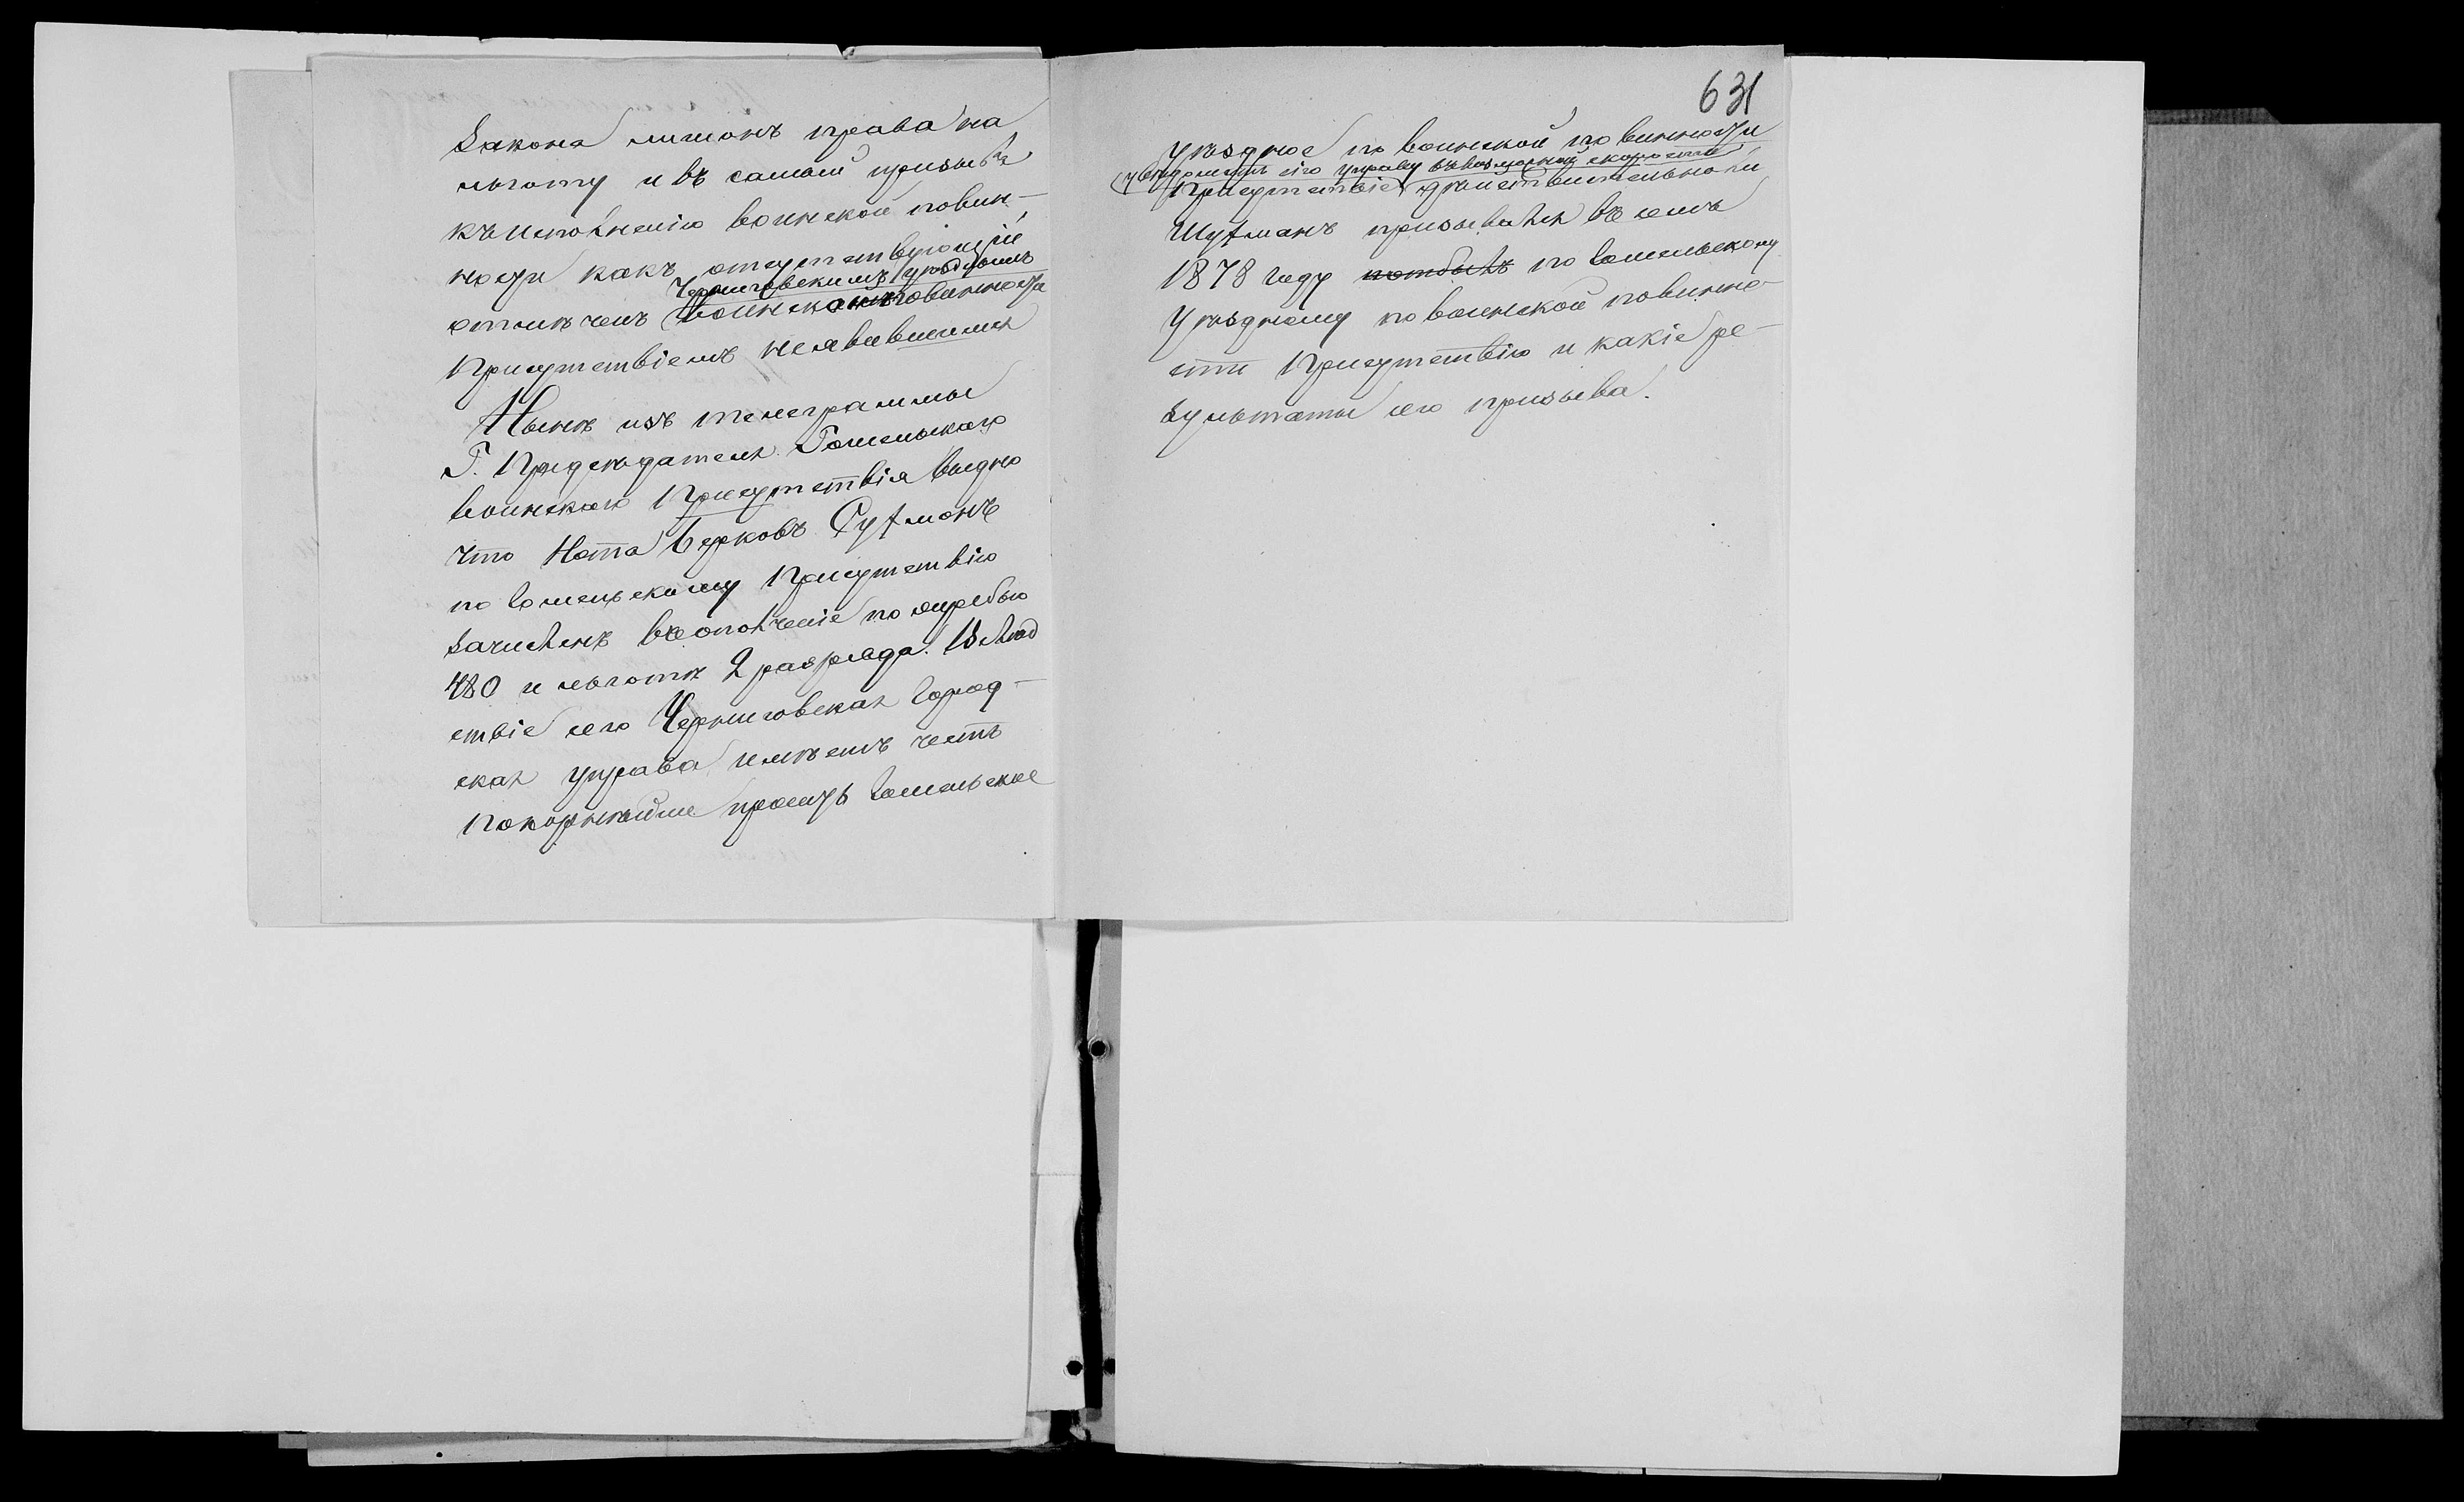 закона лишонъ права на
льготу и въ самый призывъ
къ исполненію воинской повин-
ности какъ отсутствующій,
Черниговскимъ уѣзднымъ
отмѣченъ воинской повинности
Присутствіемъ неявившимся
Нынѣ изъ телеграммы
Г. Предсѣдателя Гомельскаго
воинскаго Присутствія видно
что Нота Берковъ Сутманъ
по Гомельскому Присутствію
зачисленъ въ ополченіе по жребью
480 и льготѣ 2 разряда. Вслѣд
ствіе сего Черниговская Город-
ская управа имѣетъ честь
покорнѣйше просить Гомельское
631
уѣздное по воинской повинности
увѣдомить сію управу въ возможной скорости
Присутствіе дѣйствительно ли
Шутманъ призывался въ семъ
1878 году по Гомельскому
Уѣздному по воинской повинно-
сти Присутствію и какіе ре-
зультаты его призыва.